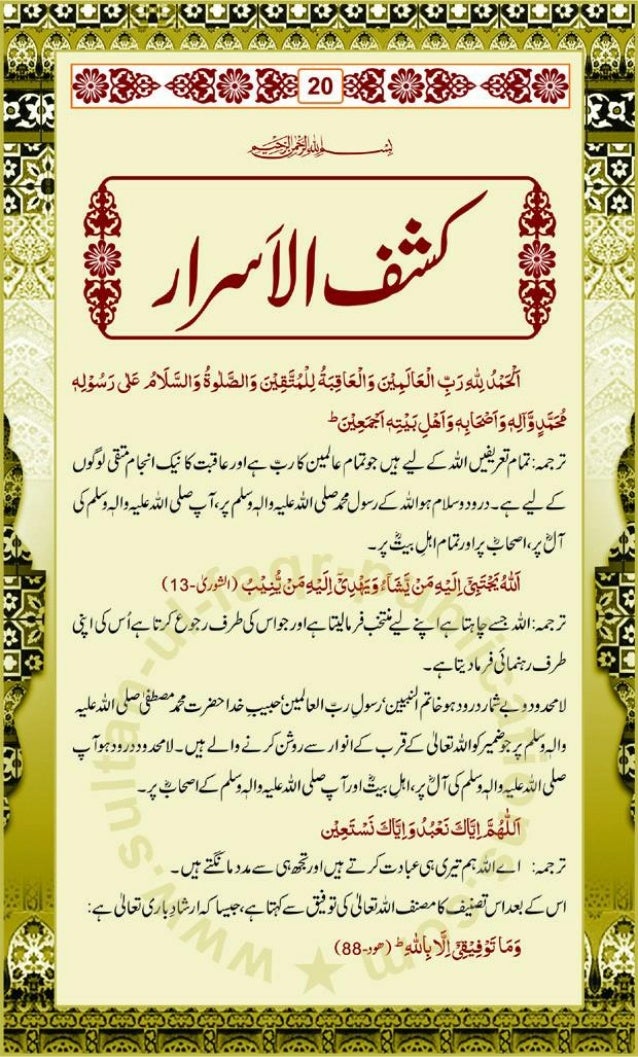 20
بسم اللہ الرحمن الرحیم
کشف الاَسرار
اَلْحَمْدُ لِلّٰہِ رَبِّ الْعَالَمِیْنَ وَالْعَاقِبَۃُ لِلْمُتَّقِیْنَ وَالصَّلٰوۃُ وَالسَّلَامُ عَلٰی رَسُوْلِہٖ
مُحَمَّدٍ وَّآلِہٖ وَاَصْحَابِہٖ وَاَھْلِ بَیْتِہٖ اَجْمَعِیْنَ ط
ترجمہ: تمام تعریفیں اللہ کے لیے ہیں جو تمام عالمین کا ربّ ہے اور عاقبت کا نیک انجام متقی لوگوں
کے لیے ہے۔ درود و سلام ہو اللہ کے رسول محمد صلی اللہ علیہ والہٖ وسلم پر، آپ صلی اللہ علیہ والہٖ وسلم کی
آلؓ پر، اصحابؓ پر اور تمام اہلِ بیتؓ پر۔
اَللّٰہُ یَجْتَبِیْٓ اِلَیْہِ مَنْ یَّشَآءُ وَیَھْدِیْٓ اِلَیْہِ مَنْ یُّنِیْبُ (الشوریٰ-13)
ترجمہ: اللہ جسے چاہتا ہے اپنے لیے منتخب فرما لیتا ہے اور جو اس کی طرف رجوع کرتا ہے اُس کی اپنی
طرف رہنمائی فرما دیتا ہے۔
لامحدود و بے شمار درود ہو خاتم النبیین، رسولِ ربّ العالمین، حبیبِ خدا حضرت محمد مصطفیٰ صلی اللہ علیہ
والہٖ وسلم پر جو ضمیر کو اللہ تعالیٰ کے قرب کے انوار سے روشن کرنے والے ہیں۔ لامحدود درود ہو آپ
صلی اللہ علیہ والہٖ وسلم کی آلؓ پر، اہلِ بیتؓ اور آپ صلی اللہ علیہ والہٖ وسلم کے اصحابؓ پر۔
اَللّٰھُمَّ اِیَّاکَ نَعْبُدُ وَ اِیَّاکَ نَسْتَعِیْن
ترجمہ: اے اللہ ہم تیری ہی عبادت کرتے ہیں اور تجھ ہی سے مدد مانگتے ہیں۔
اس کے بعد اس تصنیف کا مصنف اللہ تعالیٰ کی توفیق سے کہتا ہے، جیسا کہ ارشادِ باری تعالیٰ ہے:
وَمَا تَوْفِیْقِیْٓ اِلَّا بِاللّٰہِ ط (ھود-88)
www.sultan-ul-faqr-publications.com